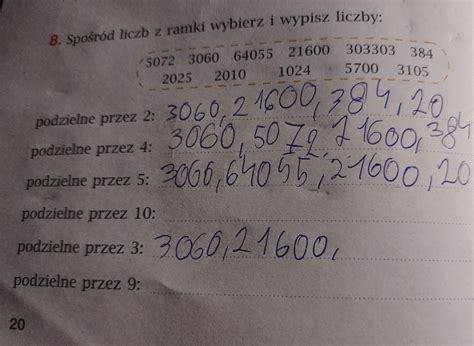 8. Spośród liczb z ramki wybierz i wypisz liczby:
5072 3060 64055 21600 303303 384
2025 2010 1024 5700 3105
podzielne przez 2: 3060, 21600, 384, 20
podzielne przez 4: 3060, 5072, 21600, 384
podzielne przez 5: 3060, 64055, 21600, 20
podzielne przez 10:
podzielne przez 3: 3060, 21600,
podzielne przez 9:
20